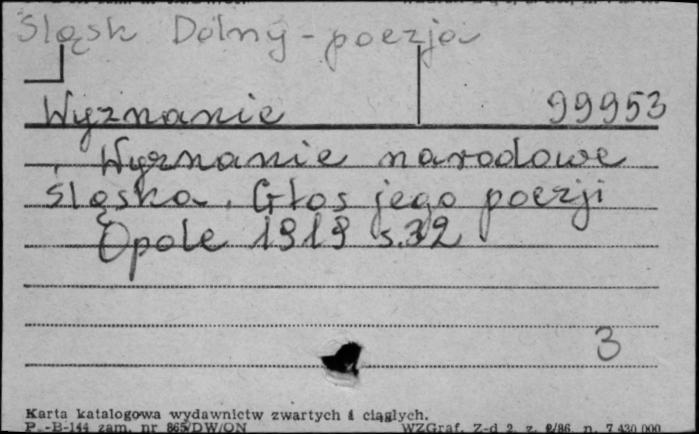 Śląsk Dolny - poezja
Wyznanie 99953
Wyznanie narodowe
Śląska. Głos jego poezji
Opole 1919 s.32
3
Karta katalogowa wydawnictw zwartych i ciągłych.
P.-B-144 zam. nr 865/DW/ON WZGraf. Z-d 2, z. 2/86, n. 7 430 000